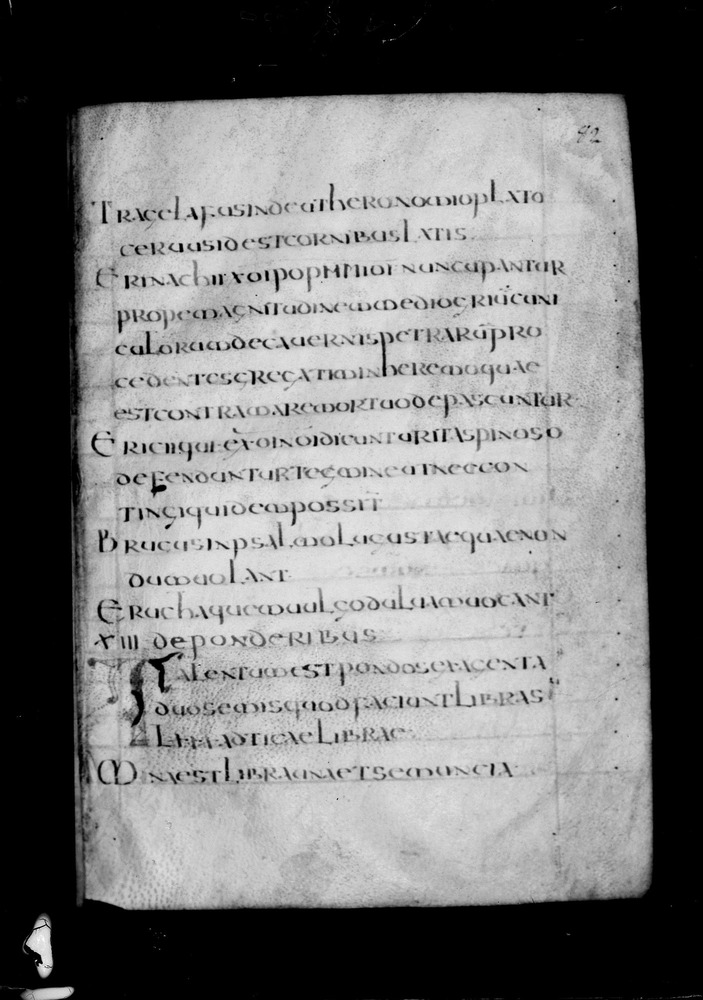 92
TRAGELAFUS IN DEUTHERONOMIO PLATO
CERUUS ID EST CORNIBUS LATIS
ERINACHII NUNCUPANTUR
PROPE MAGNITUDINEM MEDIOCRIŪ CUNI
CULORUM DE CAUERNIS PETRARŪ PRO
CEDENTES GREGATIM IN HEREMO QUAE
EST CONTRA MARE MORTUO DEPASCUNTUR
ERICII QUI EXOINOI DICUNTUR ITA SPINOSO
DEFENDUNTUR TEGMINE UT NEC CON
TINGI QUIDEM POSSIT
BRUCUS IN PSALMO LUCUSTAE QUAE NON
DUM UOLANT
ERUCHA QUEM UULGO DULUAM UOCANT
XIII DE PONDERIBUS
TALENTUM EST PONDO SEXAGENTA
DUO SEMIS QUOD FACIUNT LIBRAS
ADTICAE LIBRAE
MINA EST LIBRA UNA ET SEMUNCIA